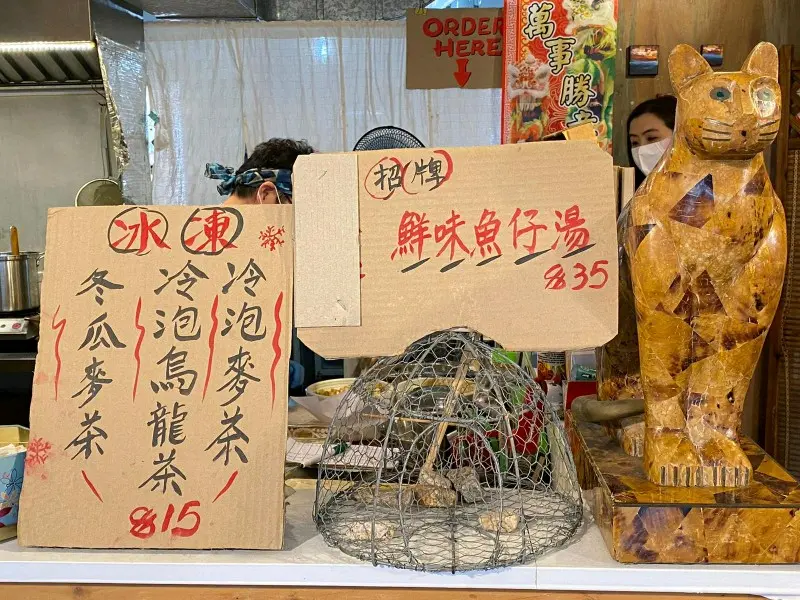 ORDER
HERE
萬事勝意
冰凍
冷泡麥茶
冷泡烏龍茶
冬瓜麥茶
$15
招牌
鮮味魚仔湯
$35